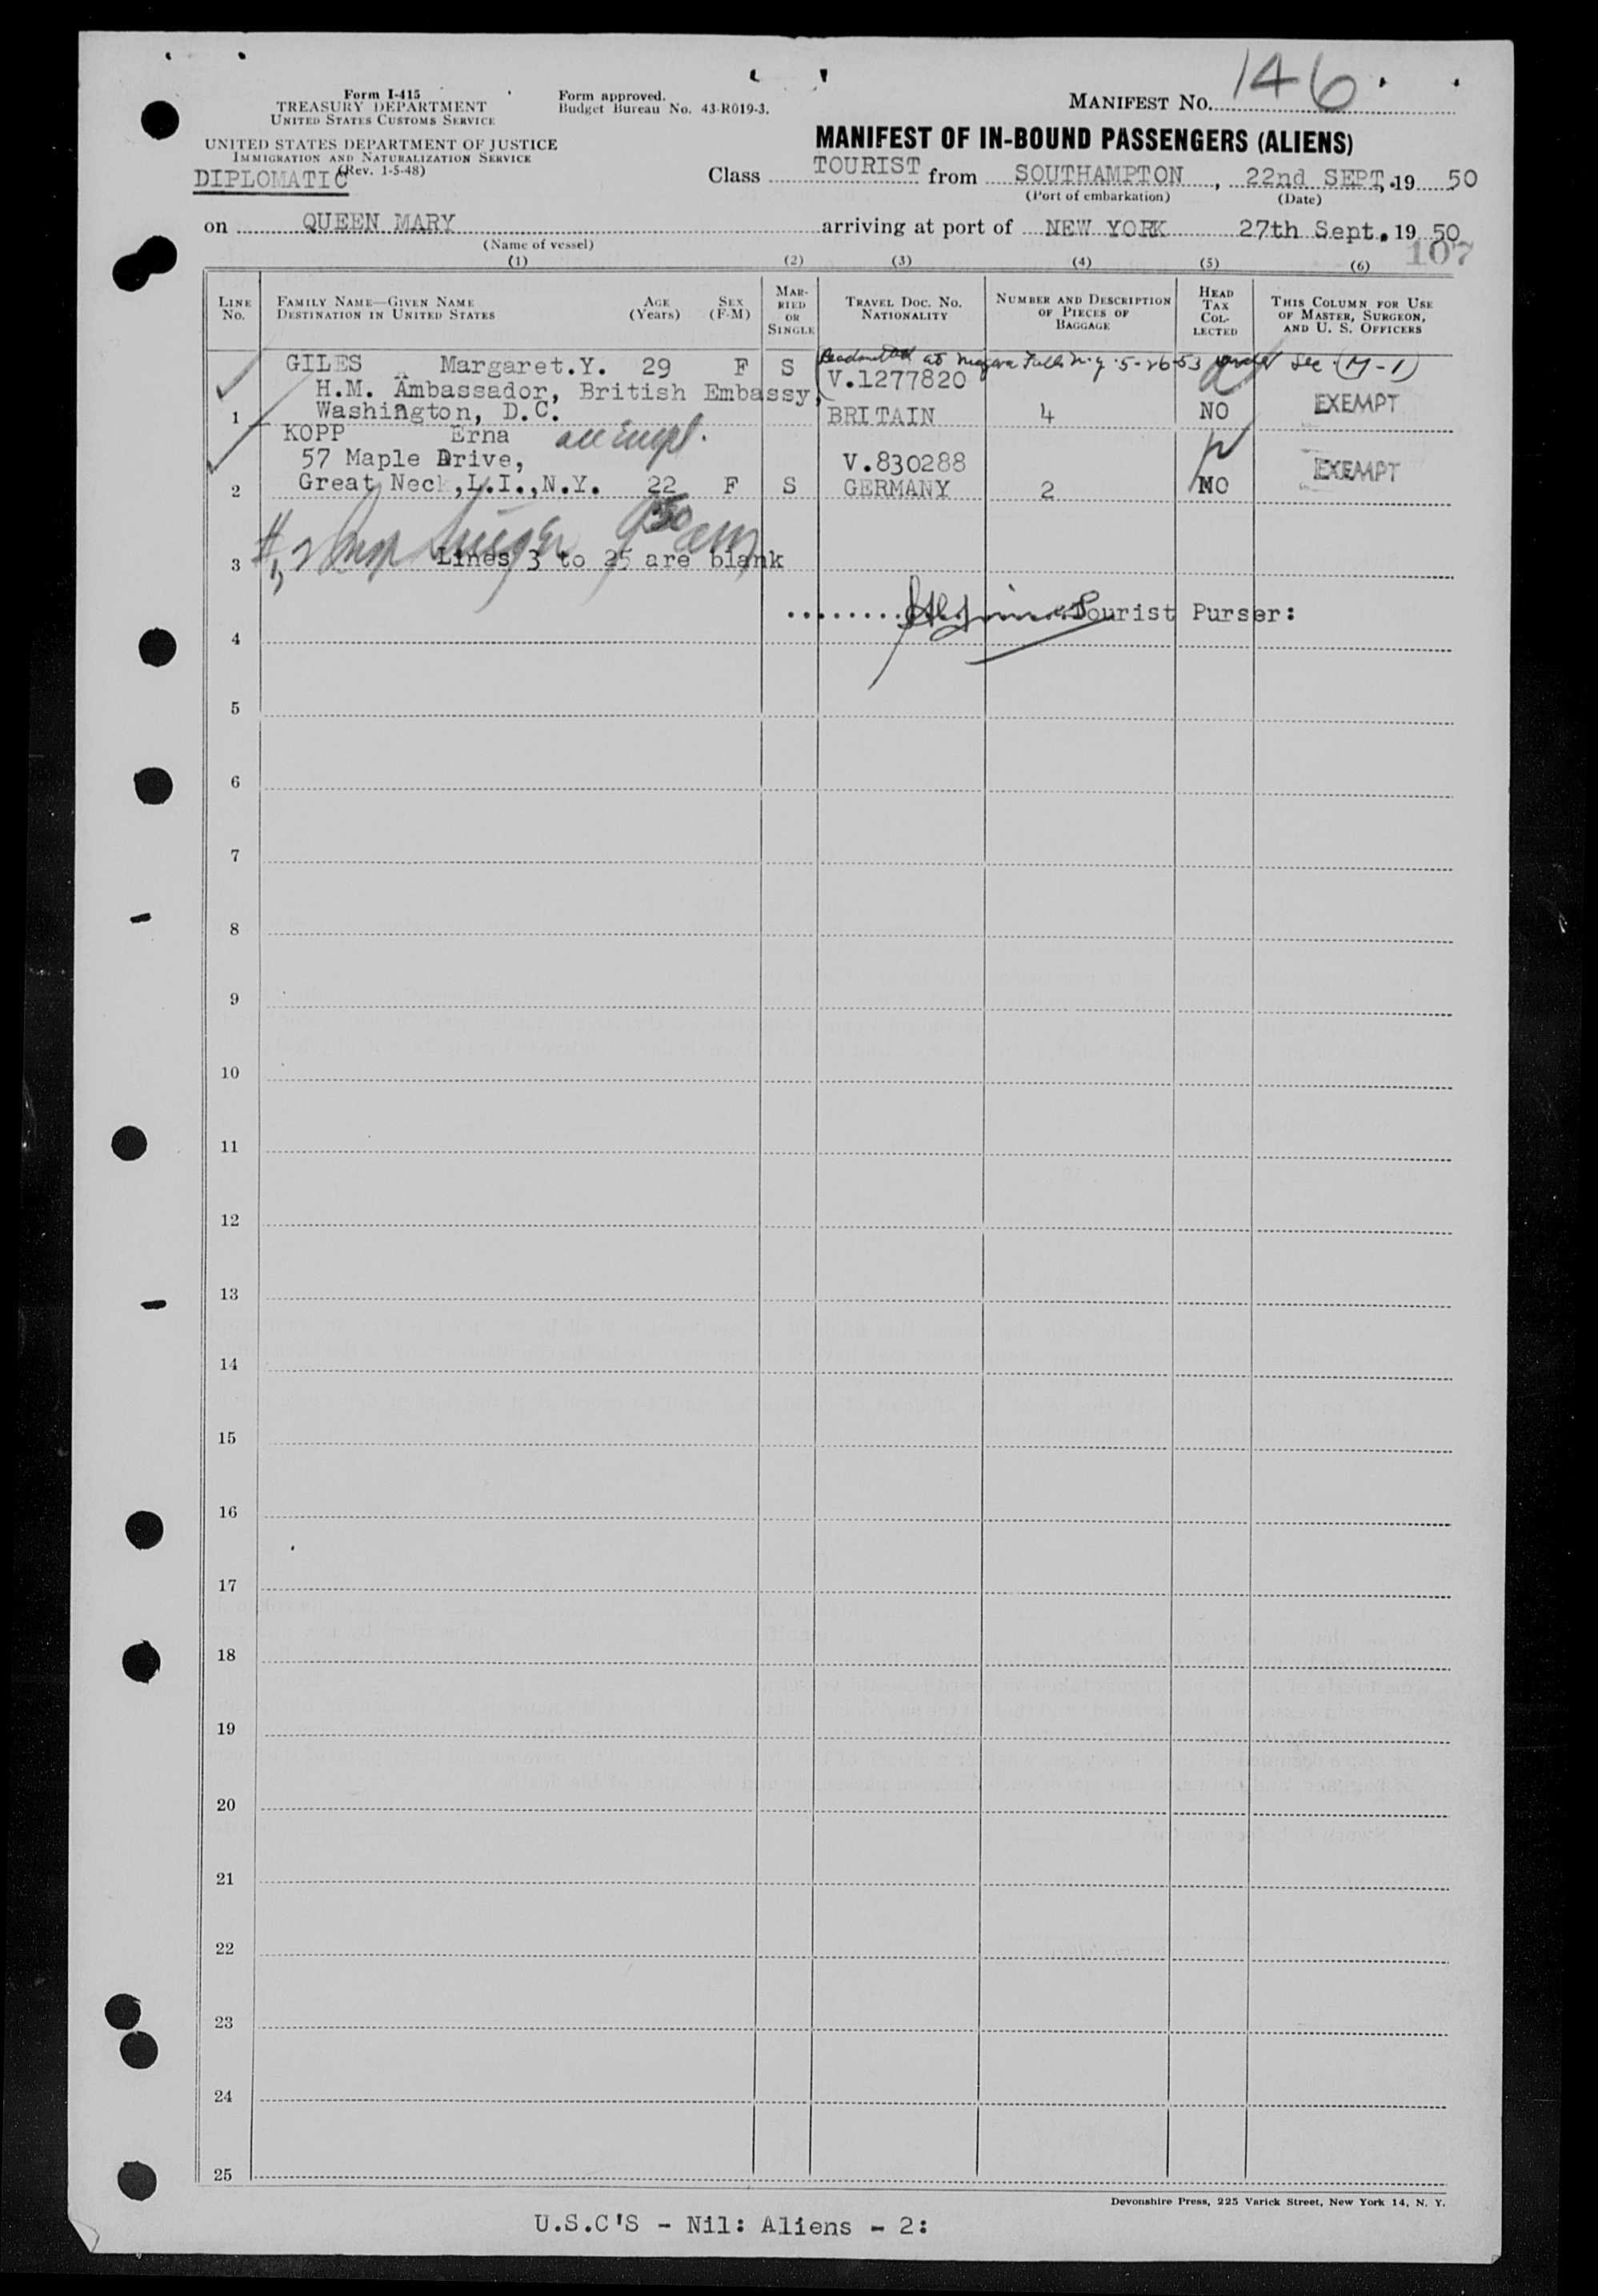 146
Form I-415
TREASURY DEPARTMENT
UNITED STATES CUSTOMS SERVICE
Form approved.
Budget Bureau No. 43-R019-3.
MANIFEST NO.
UNITED STATES DEPARTMENT OF JUSTICE
IMMIGRATION AND NATURALIZATION SERVICE
(Rev. 1-5-48)
DIPLOMATIC
MANIFEST OF IN-BOUND PASSENGERS (ALIENS)
Class TOURIST from SOUTHAMPTON, 22nd SEPT. 19 50
(Port of embarkation) (Date)
on QUEEN MARY arriving at port of NEW YORK 27th Sept. 19 50
(Name of vessel)
107
(1) (2) (3) (4) (5) (6)
LINE NO. FAMILY NAME—GIVEN NAME DESTINATION IN UNITED STATES AGE (Years) SEX (F-M) MARRIED OR SINGLE TRAVEL DOC. NO. NATIONALITY NUMBER AND DESCRIPTION OF PIECES OF BAGGAGE HEAD TAX COLLECTED THIS COLUMN FOR USE OF MASTER, SURGEON, AND U. S. OFFICERS
Readmitted at Niagara Falls N.Y. 5-26-53 under Sec (M-1)
GILES Margaret.Y. 29 F S V.1277820
H.M. Ambassador, British Embassy,
1 Washington, D.C. BRITAIN 4 NO EXEMPT
KOPP Erna
57 Maple Drive, V.830288
2 Great Neck,L.I.,N.Y. 22 F S GERMANY 2 NO EXEMPT
3 Lines 3 to 25 are blank
Tourist Purser:
4
5
6
7
8
9
10
11
12
13
14
15
16
17
18
19
20
21
22
23
24
25
Devonshire Press, 225 Varick Street, New York 14, N. Y.
U.S.C'S - Nil: Aliens - 2: